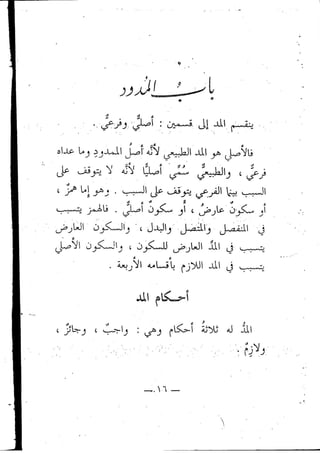 باب المدود
ينقسم المد إلى قسمين : أصليّ وفرعيّ .
فالأصلي هو المد الطبيعي لأنه أصل المدود وما عداه
فرعيّ ، والطبيعيّ سُمّي أصليًا لأنه لا يتوقف على
السبب بينما الفرعي يتوقف على السبب . وهو إما همز ،
أو سكونٌ عارض ، أو سكونٌ أصليّ . فالهمز يتسبب
في المنفصل والمتصل والبدل ، والسكون العارض
يتسبب في المدِّ العارض للسكون ، والسكون الأصلي
يتسبب في المد اللازم بأقسامه الأربعة .
أحكام المد
المدُّ له ثلاثةُ أحكام وهي : واجبٌ ، وجائز ،
ولازم .
— ١٦ —